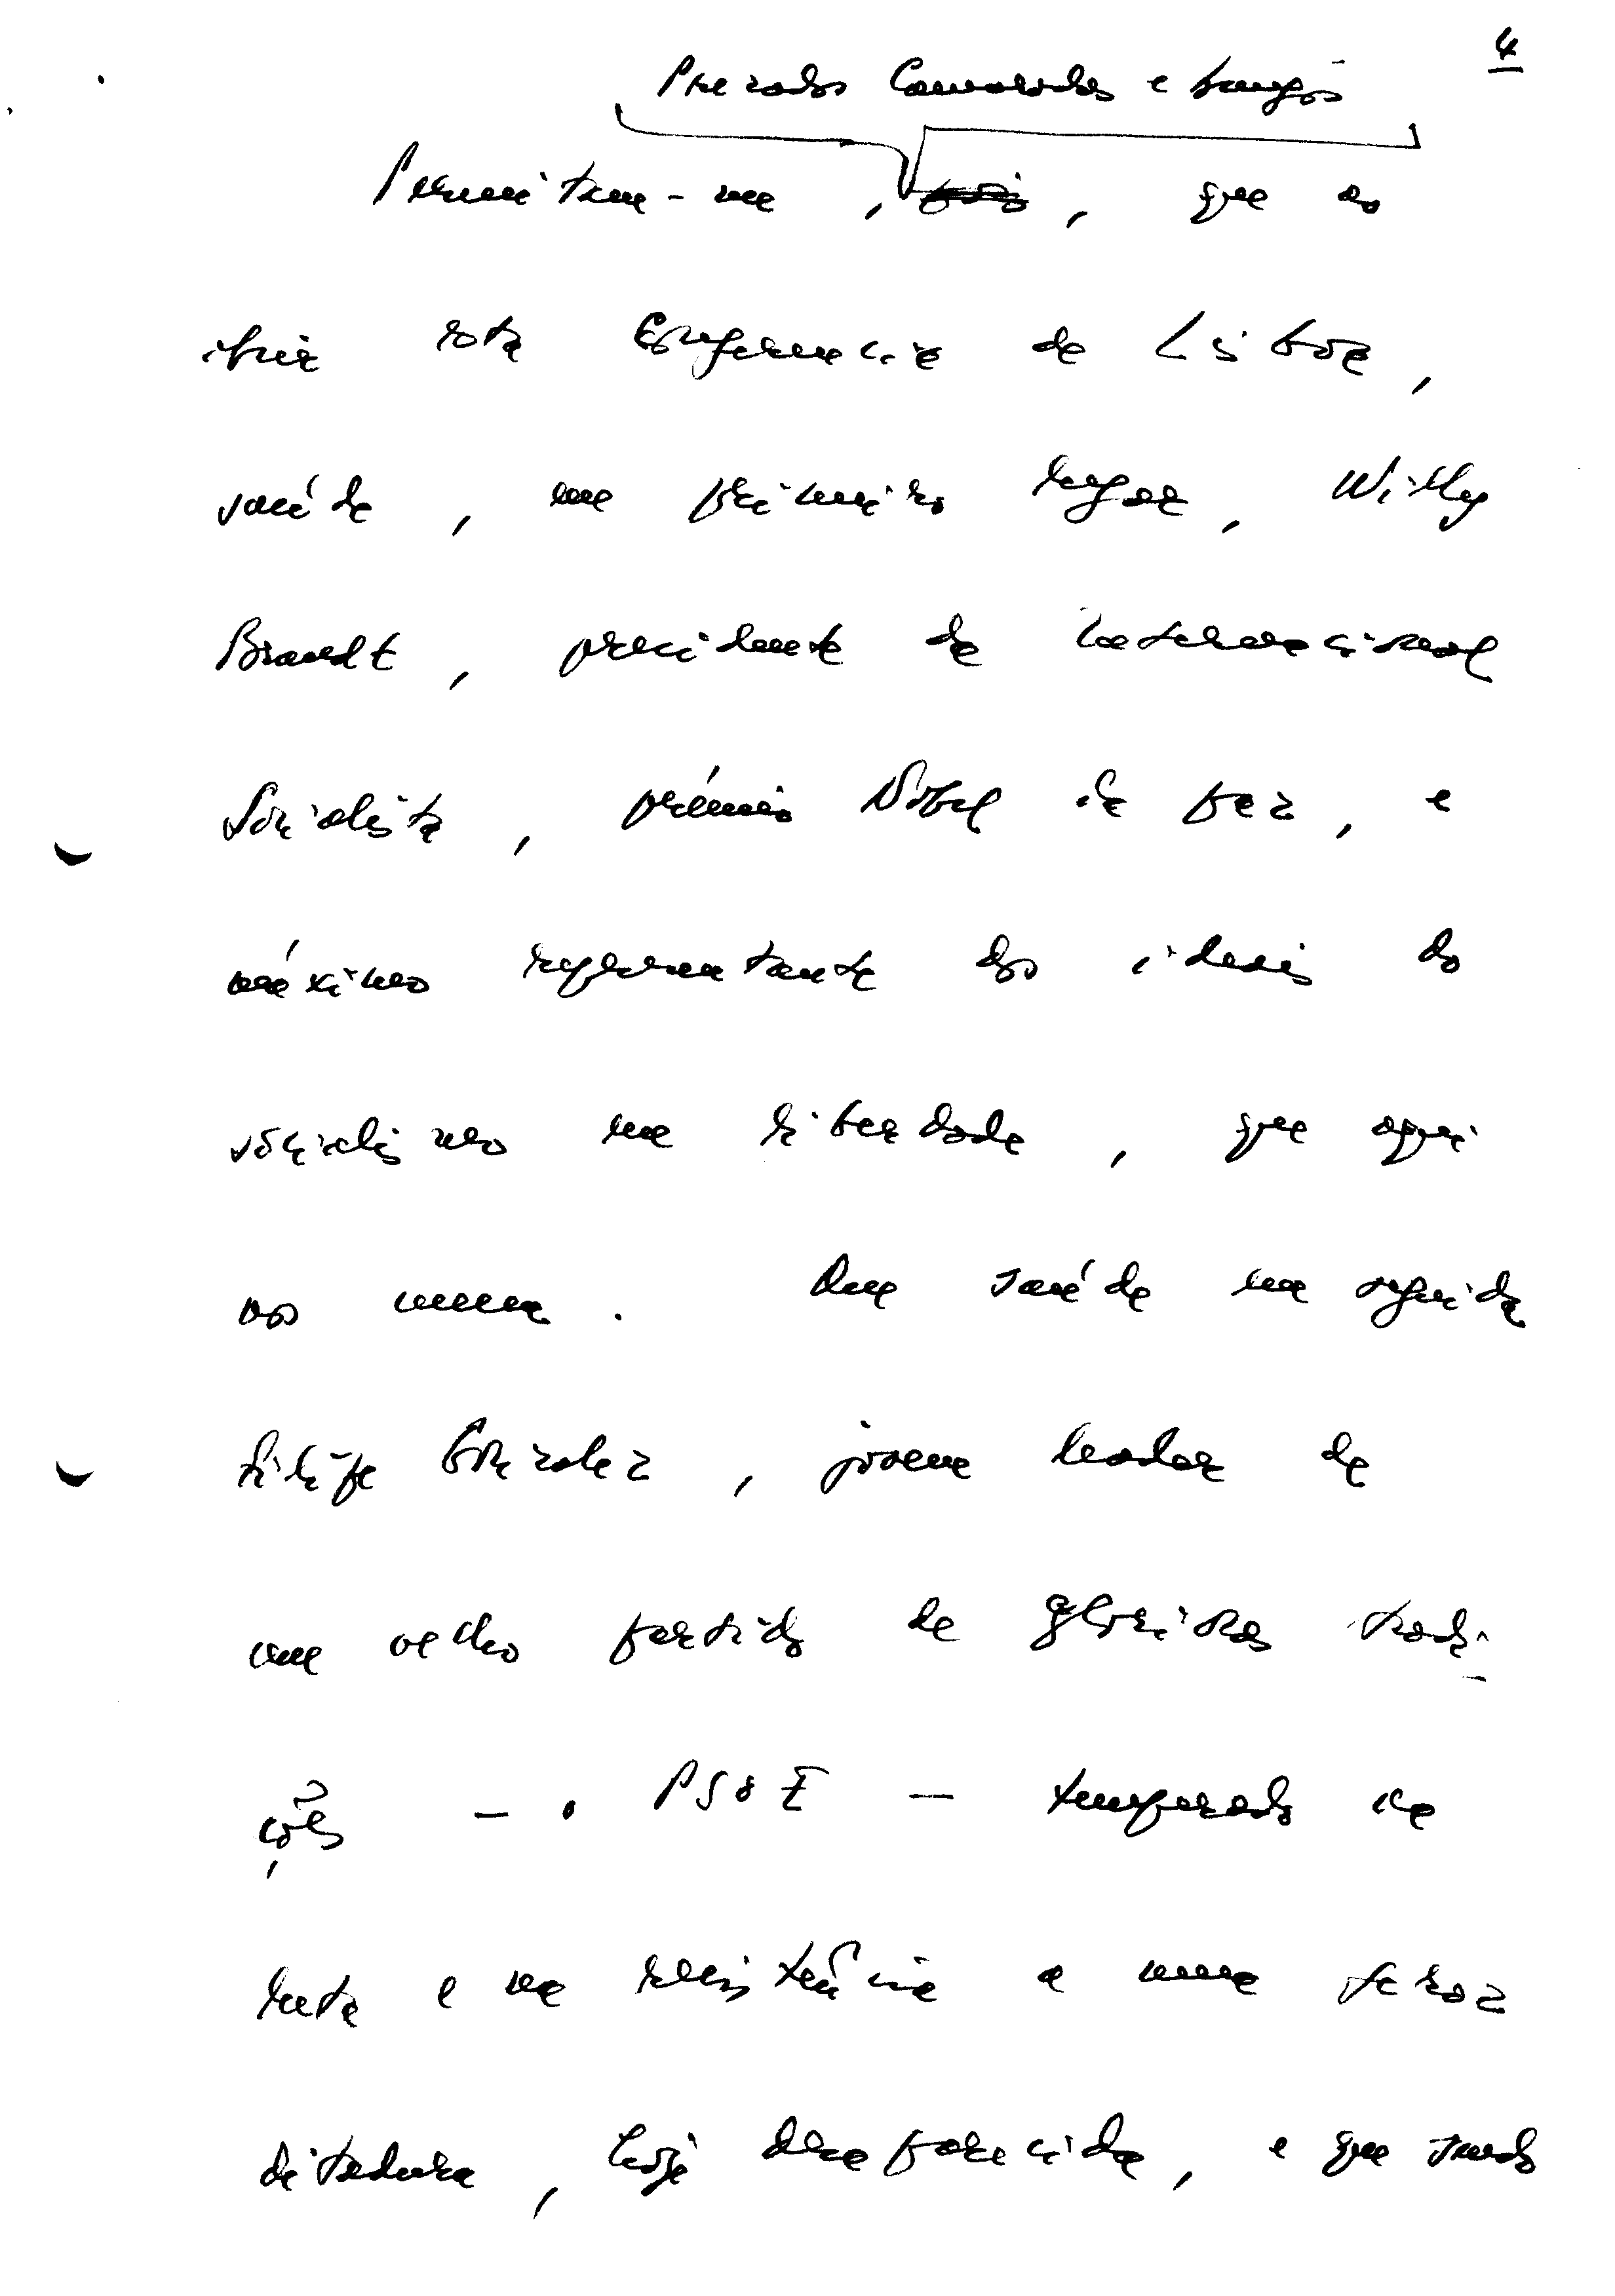 4
Prezados Camaradas e Amigos
Permitam-me, pois, que ao
abrir esta Conferencia de Lisboa,
saúde, em primeiro lugar, Willy
Brandt, presidente da Internacional
Socialista, prémio Nobel da paz, e
máximo representante dos ideais do
socialismo em liberdade, que aqui
nos reune. Que saúde em seguida
Filipe Gonzalez, jovem leader de
um velho partido de gloriosas tradi-
ções – o PSOE – temperado na
luta e na resistência a uma feroz
ditadura, hoje desaparecida, e que sendo